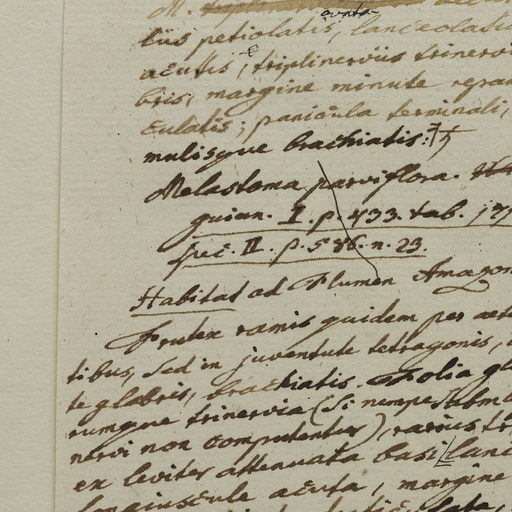 ovata
tiis petiolatis, lanceolatis
acutis, triplinerviis trinervi
bris, margine minute repan
culatis; panicula terminali,
mulisque brachiatis.
Melastoma parviflora.
guian. I. p. 433. tab. 171
spec. II. p. 546. n. 23.
Habitat ad Flumen Amazon
Frutex ramis quidem per aeta
tibus, sed in juventute tetragonis,
te glabris, brachiatis. Folia gla
rumque trinervia (si nempe subma
nervi non computentur), rarius tri
ex leviter attenuata basi lanc
longiuscule acuta, margine